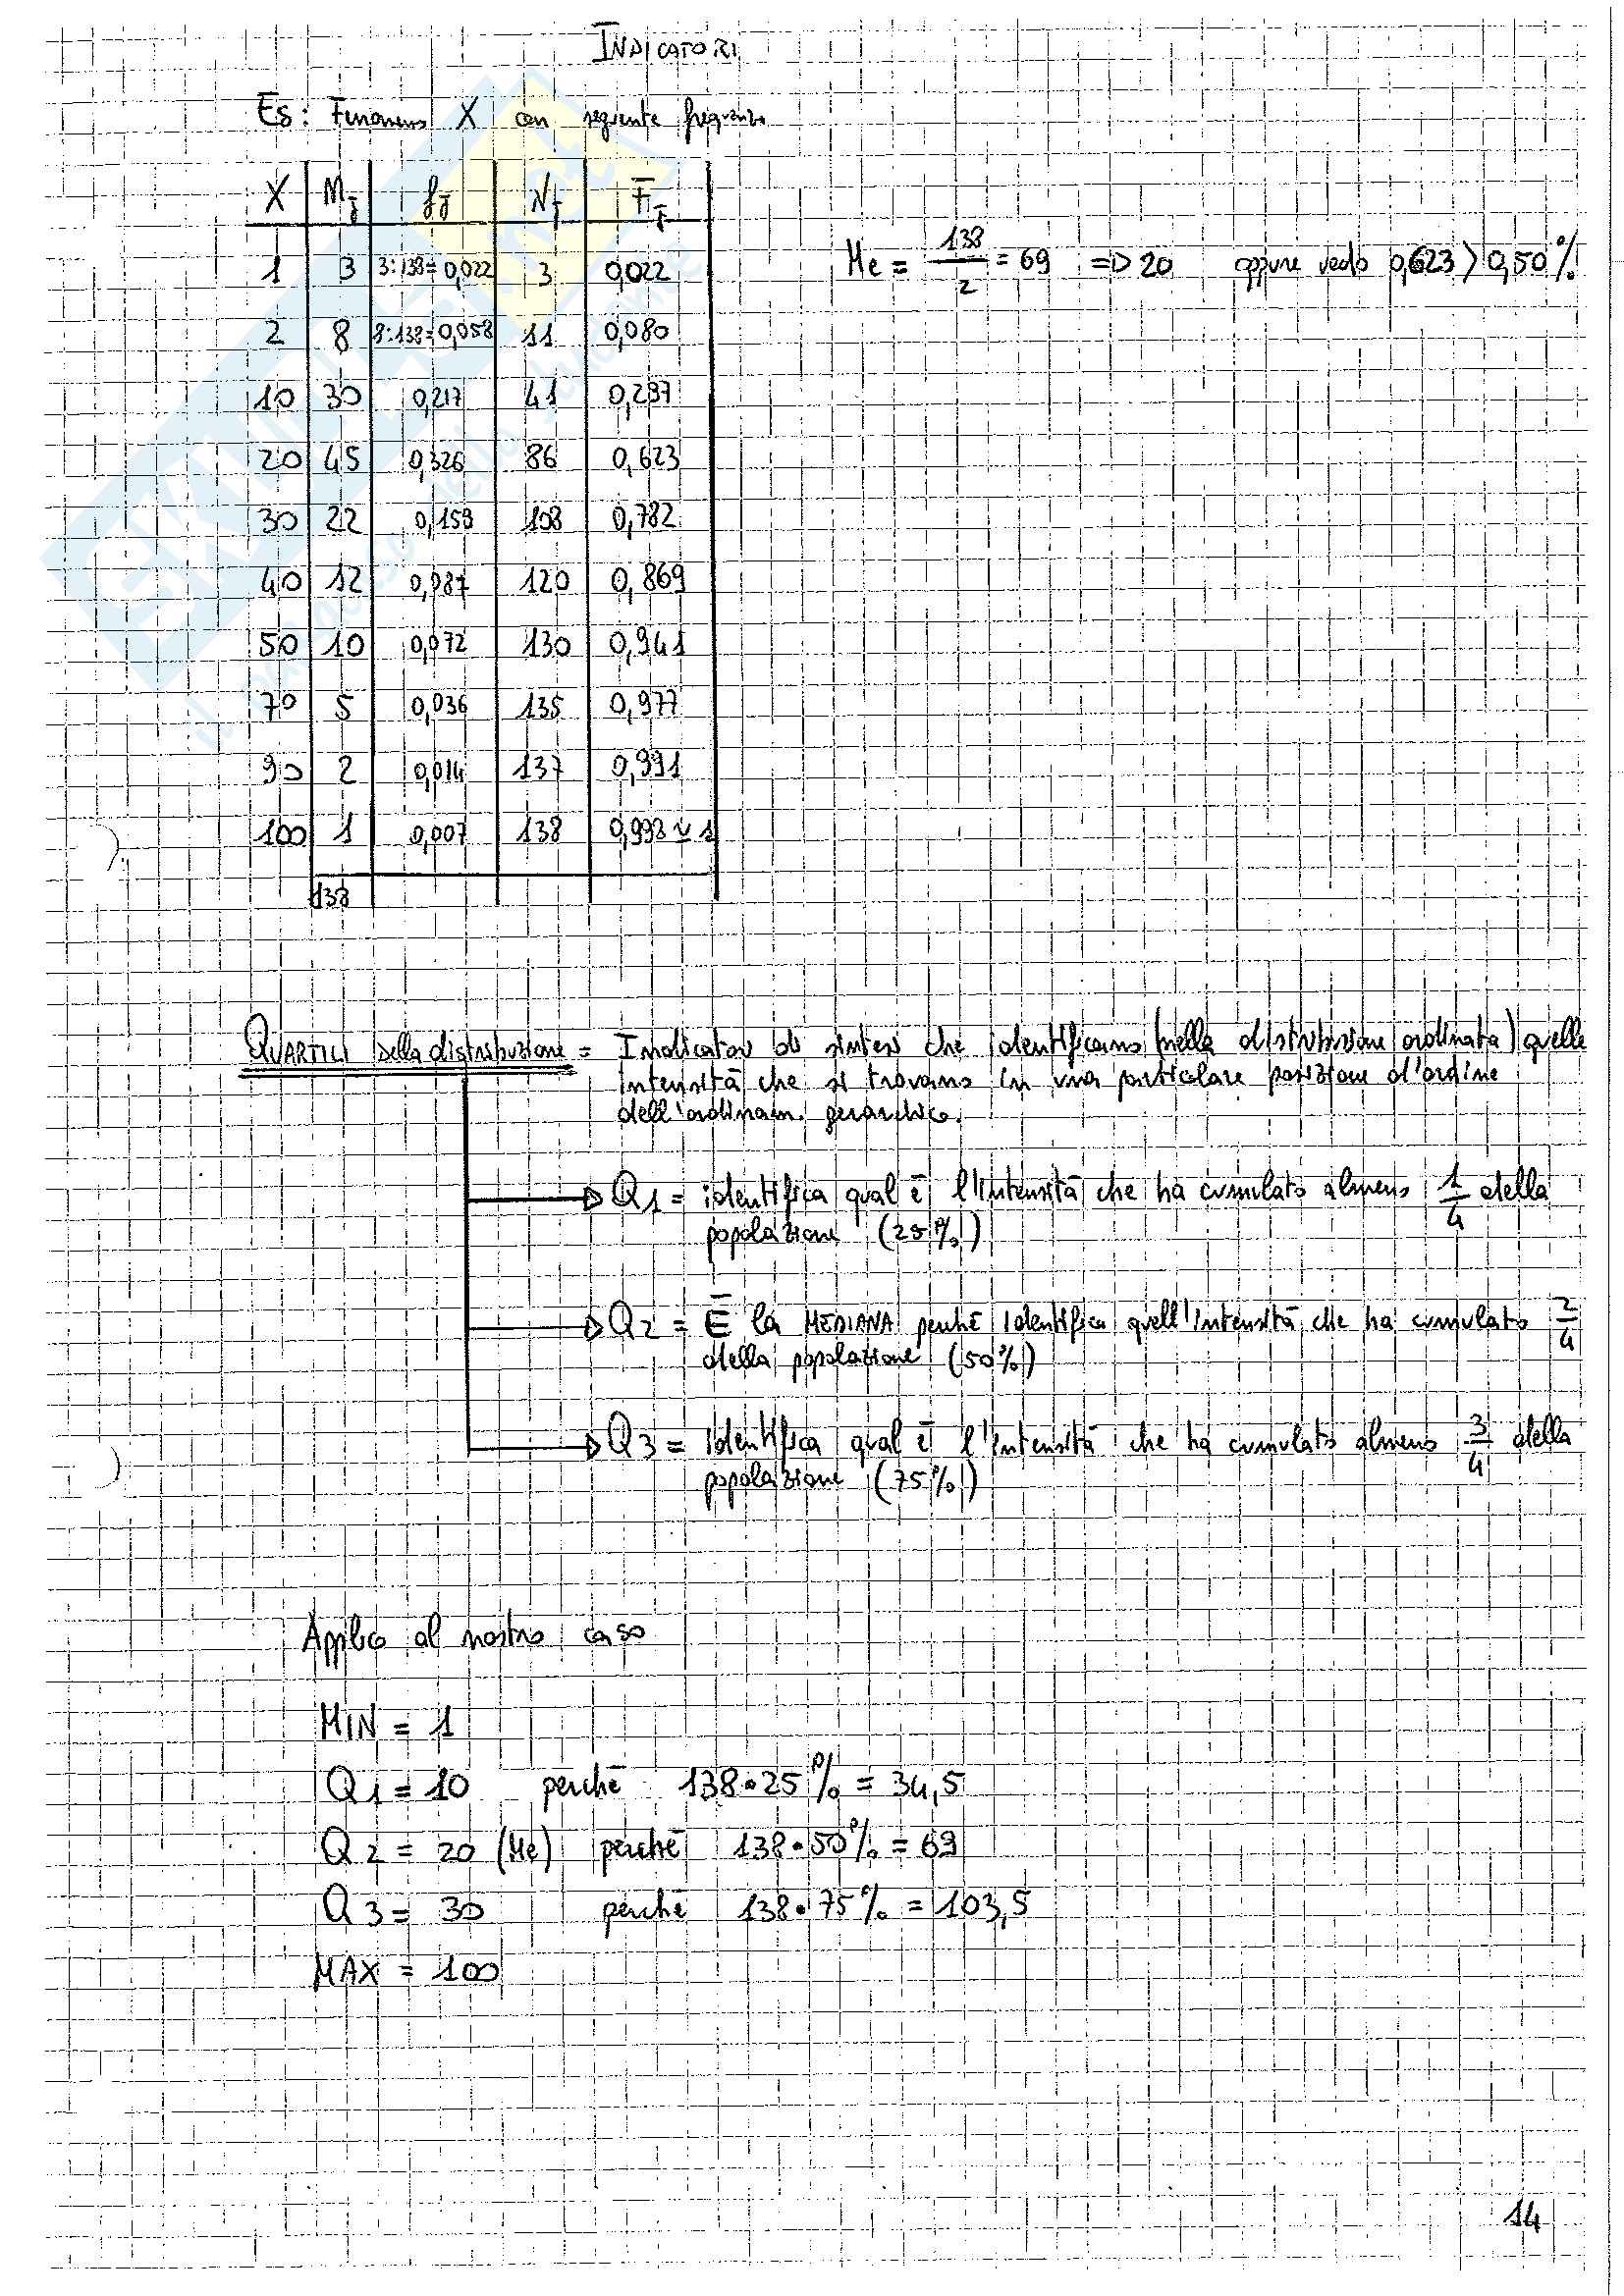 INDICATORI
Es: Fenomeno X con seguente frequenza
X nj fj Nj Fj
1 3 3:138=0,022 3 0,022
2 8 8:138=0,058 11 0,080
10 30 0,217 41 0,297
20 45 0,326 86 0,623
30 22 0,159 108 0,782
40 12 0,087 120 0,869
50 10 0,072 130 0,941
70 5 0,036 135 0,977
90 2 0,014 137 0,991
100 1 0,007 138 0,998 ≃ 1
138
Me = 138/2 = 69 => 20 oppure vedo 0,623 > 0,50%
QUARTILI della distribuzione = Indicatori di sintesi che identificano (nella distribuzione ordinata) quelle
intensità che si trovano in una particolare posizione d'ordine
dell'ordinam. gerarchico.
Q1 = identifica qual è l'intensità che ha cumulato almeno 1/4 della
popolazione (25%)
Q2 = È la MEDIANA perchè identifica quell'intensità che ha cumulato 2/4
della popolazione (50%)
Q3 = identifica qual è l'intensità che ha cumulato almeno 3/4 della
popolazione (75%)
Applico al nostro caso
MIN = 1
Q1 = 10 perchè 138•25% = 34,5
Q2 = 20 (Me) perchè 138•50% = 69
Q3 = 30 perchè 138•75% = 103,5
MAX = 100
14